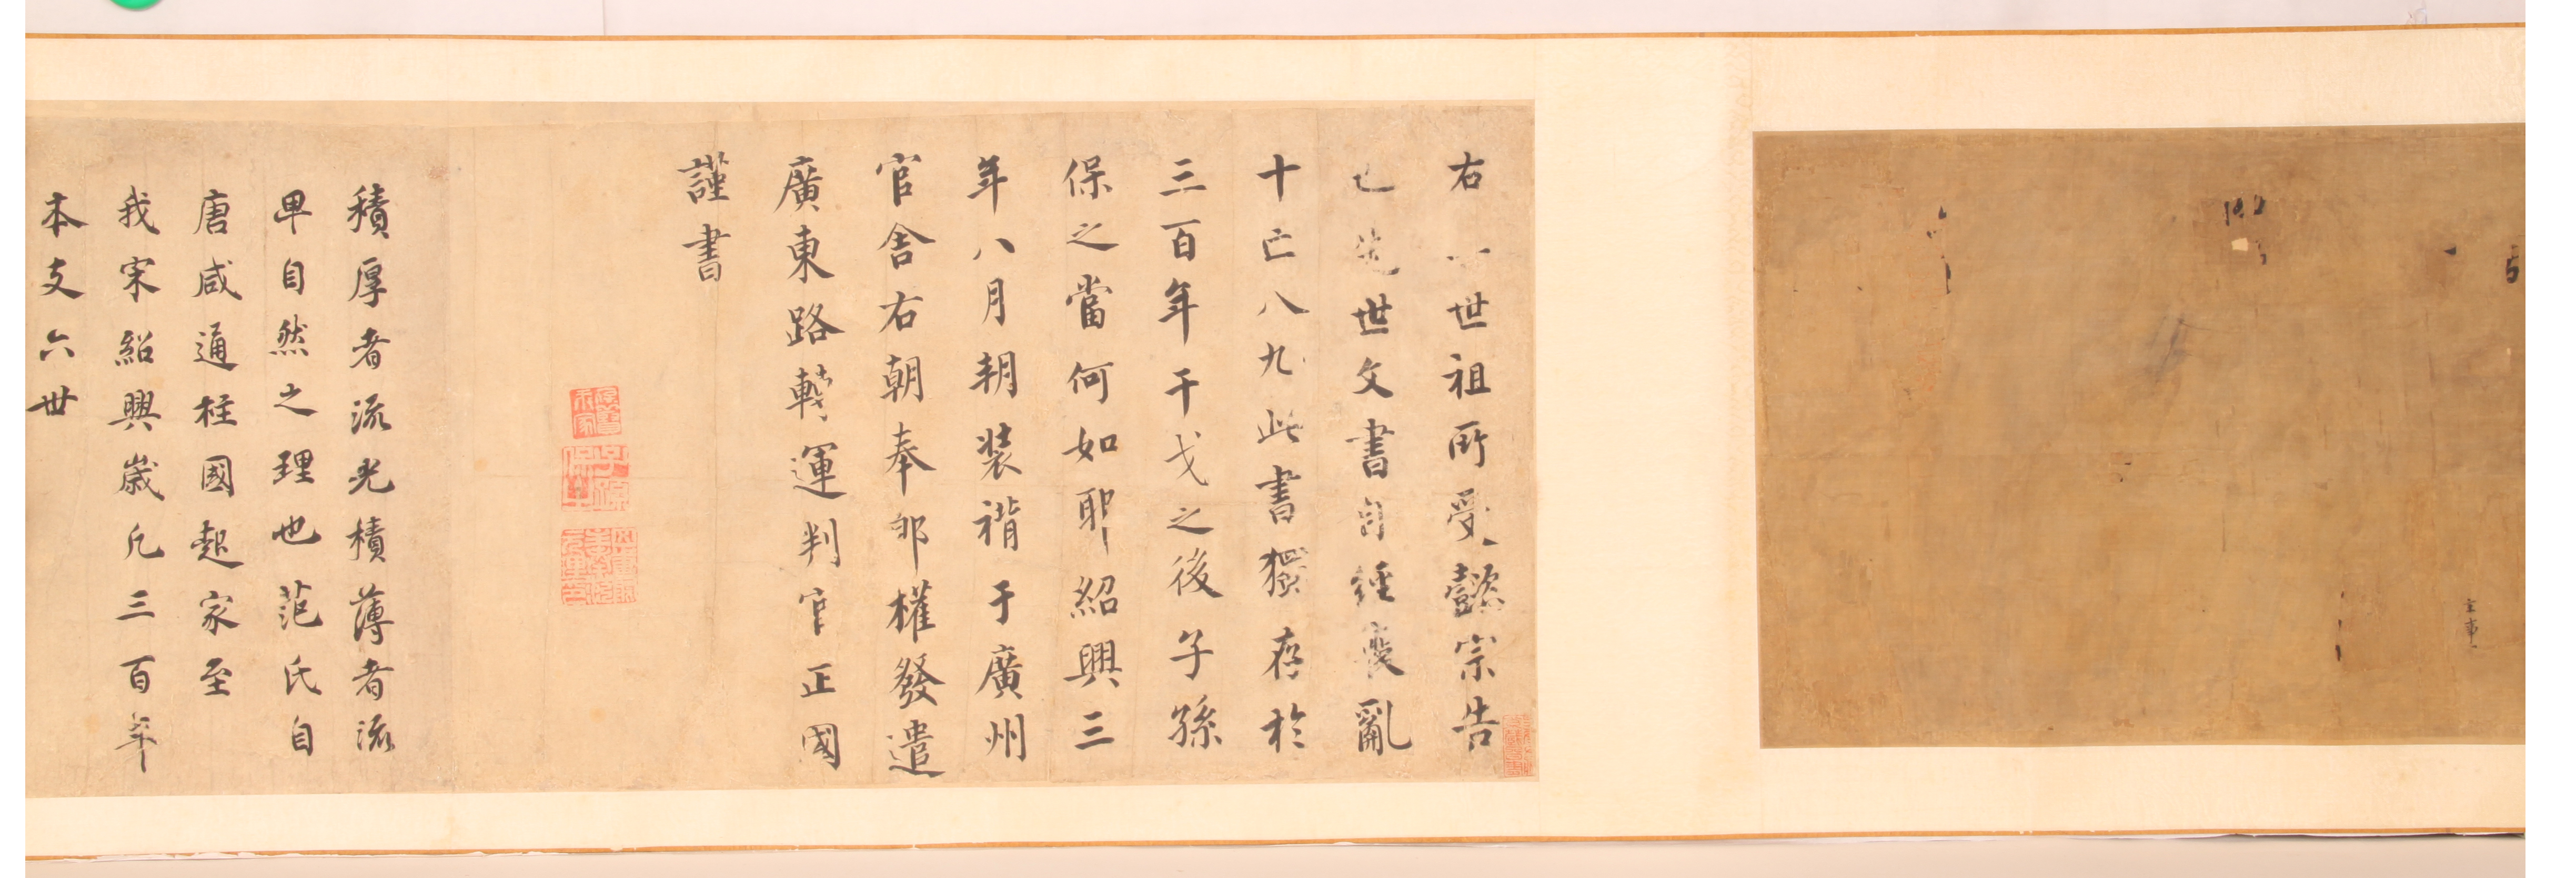 主事
右一世祖所受懿宗告
也先世文書自經喪亂
十亡八九此書獨存於
三百年干戈之後子孫
保之當何如耶紹興三
年八月朔裝褙于廣州
官舍右朝奉郎權發遣
廣東路轉運判官正國
謹書
積厚者流光積薄者流
卑自然之理也范氏自
唐咸通柱國起家至
我宋紹興歲凡三百年
本支六世